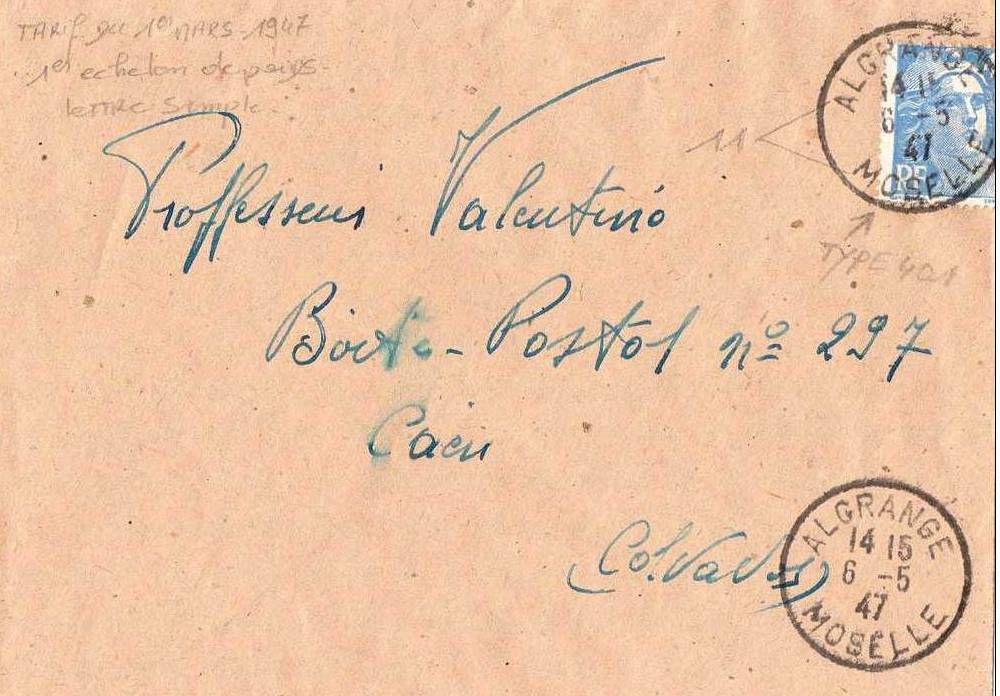 TARIF DU 1er MARS 1947
1er echelon de poids
lettre simple
ALGRANGE
14 15
6 -5
47
MOSELLE
RF
11
TYPE
Proffesseur Valentino
Boite-Postol nº 297
Caen
(Colvados)
ALGRANGE
14 15
6 -5
47
MOSELLE